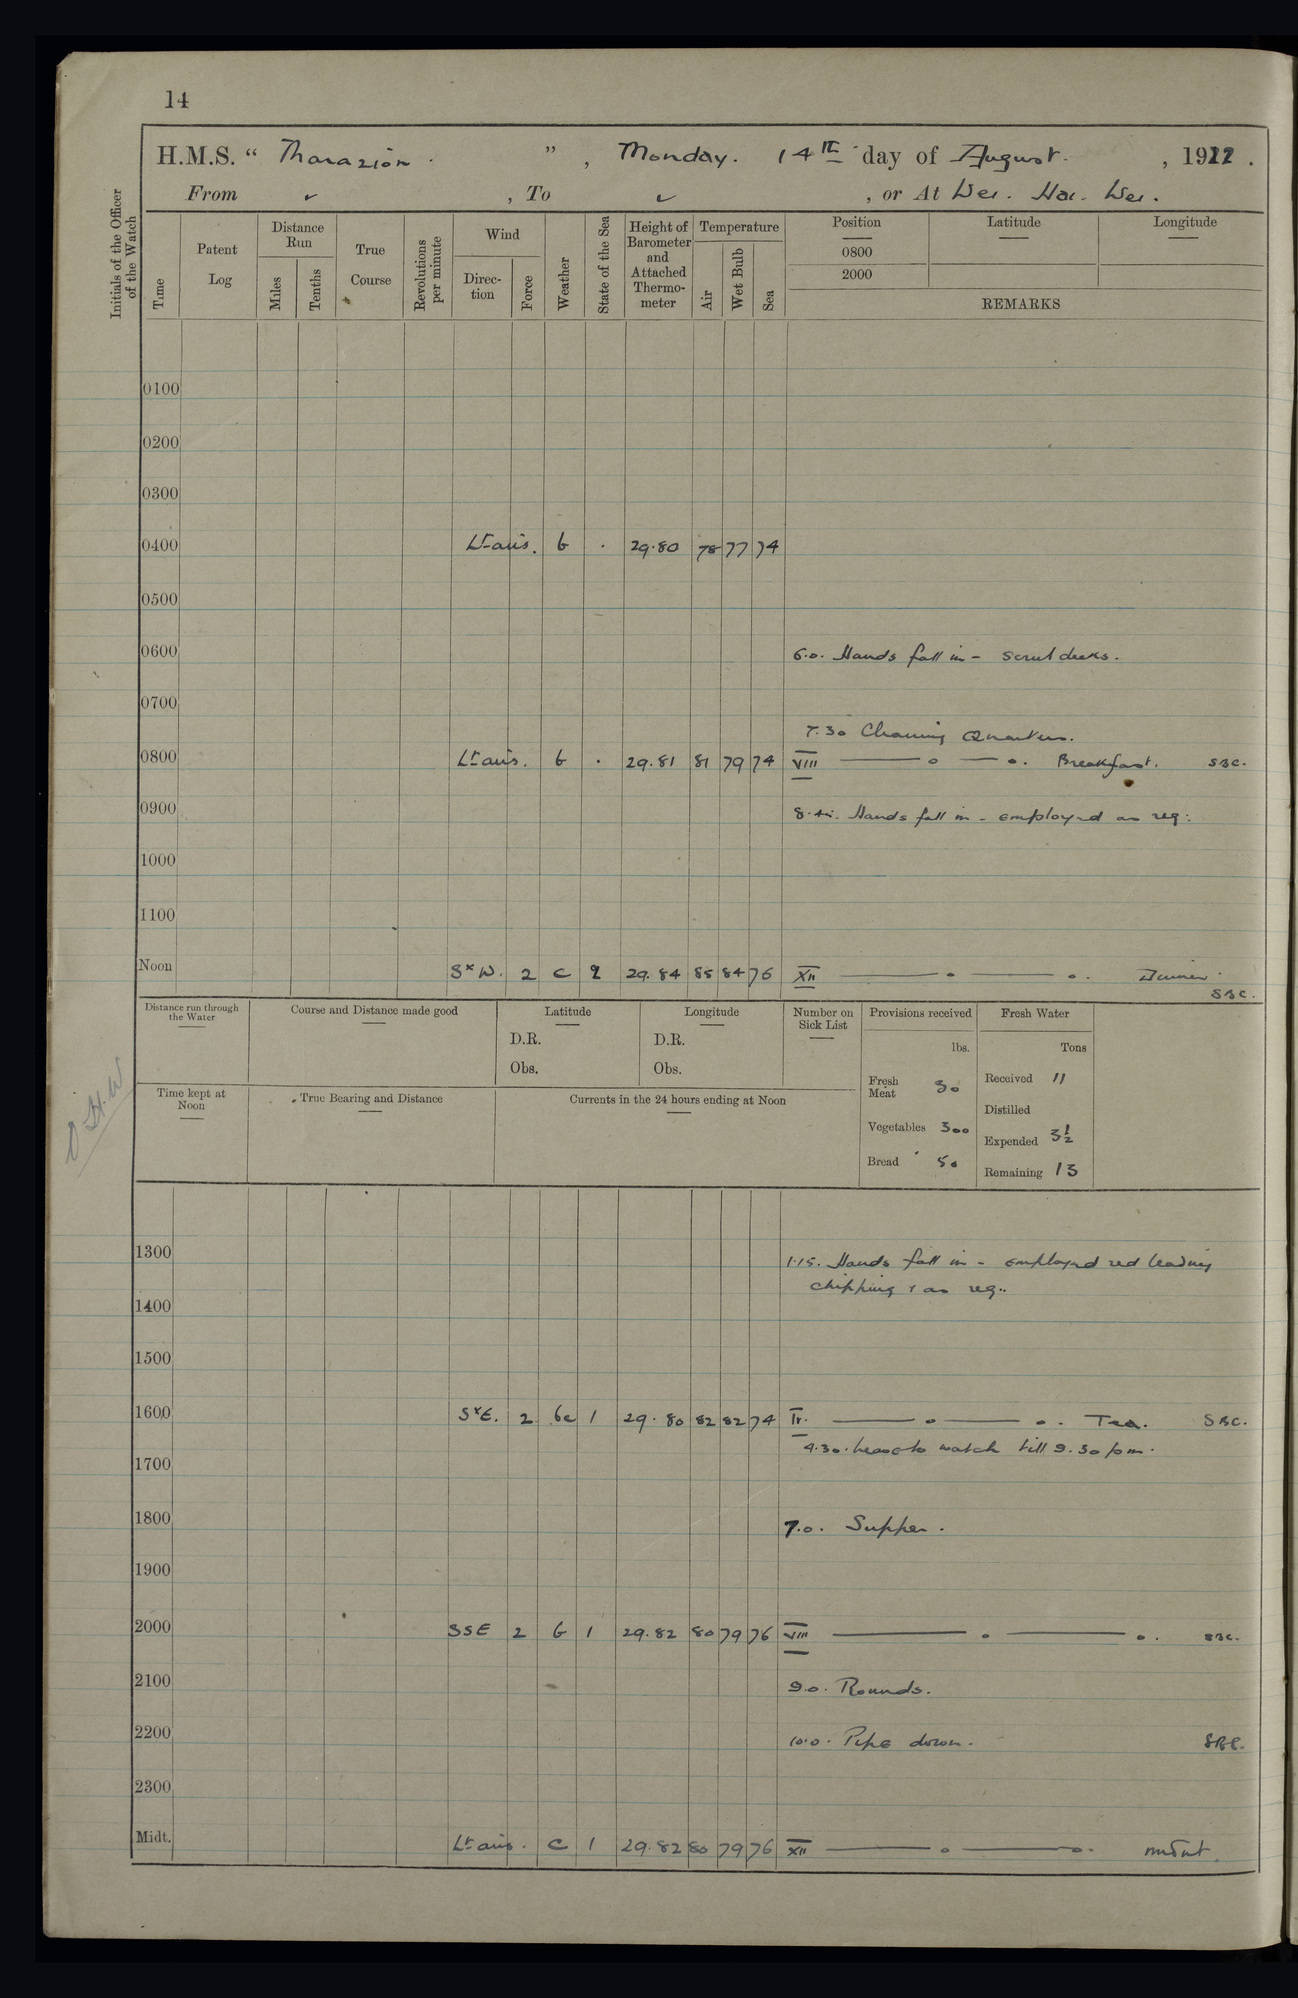 14
H.M.S. " Tharazion . " , Monday. 14th day of August. , 1922 .
From ✓ , To ✓ , or At Wei. Hai. Wei.
Initials of the Officer of the Watch
Time
Patent Log
Distance Run
Miles
Tenths
True Course
Revolutions per minute
Wind
Direction
Force
Weather
State of the Sea
Height of Barometer and Attached Thermometer
Temperature
Air
Wet Bulb
Sea
Position
Latitude
Longitude
0800
2000
REMARKS
0100
0200
0300
0400 Lt airs. b . 29.80 78 77 74
0500
0600 6.0. Hands fall in - scrub decks.
0700
7.30 Cleaning Quarters.
0800 Lt airs. b . 29.81 81 79 74 VIII —— o —— o. Breakfast. SBC.
0900 Hands fall in - employed as req:
1000
1100
Noon SxW. 2 c 2 29.84 85 84 76 XII —— o —— o. Dinner.
SBC.
Distance run through the Water
Course and Distance made good
Latitude
D.R.
Obs.
Longitude
D.R.
Obs.
Number on Sick List
Provisions received
lbs.
Fresh Meat 30
Vegetables 300
Bread 50
Fresh Water
Tons
Received 11
Distilled
Expended 3½
Remaining 13
Time kept at Noon
True Bearing and Distance
Currents in the 24 hours ending at Noon
1300 1.15. Hands fall in - employed red leading
chipping & as req..
1400
1500
1600 SxE. 2 bc 1 29.80 82 82 74 IV. —— o —— o. Tea. SBC.
4.30. Leave to watch till 9.30 pm.
1700
1800 7.0. Supper.
1900
2000 SSE 2 b 1 29.82 80 79 76 VIII —— o —— o. SBC.
2100 9.0. Rounds.
2200 10.0. Pipe down. SBC.
2300
Midt. Lt airs. c 1 29.82 80 79 76 XII —— o —— o.